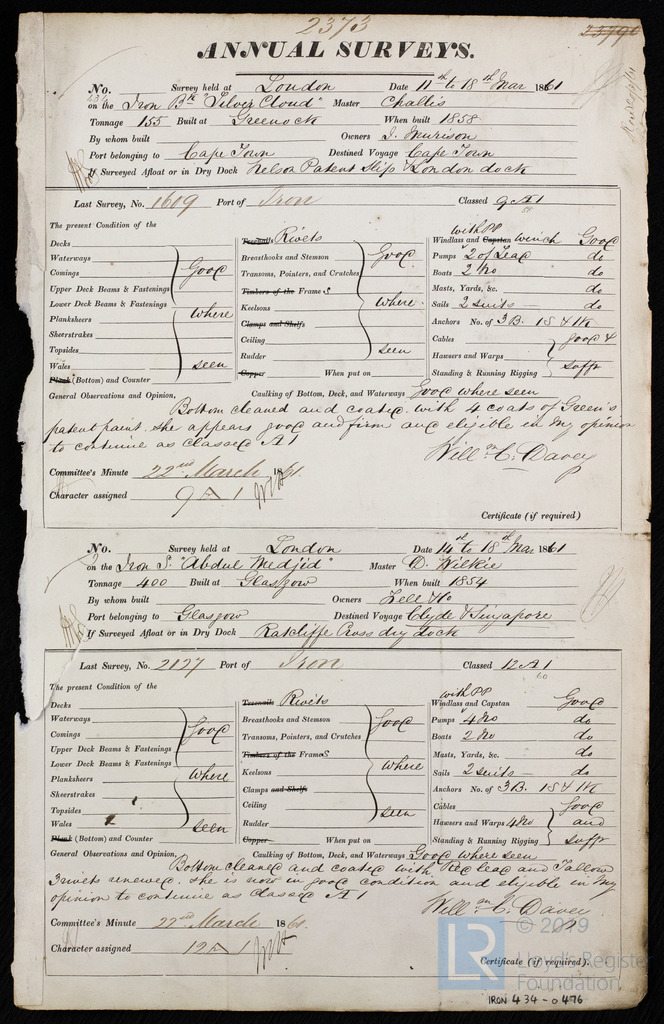 2373
ANNUAL SURVEYS.
No. Survey held at London Date 11th to 18th Mar 1861
on the Iron Bk "Silver Cloud" Master Challis
Tonnage 155 Built at Greenock When built 1858
By whom built Owners J. Murison
Port belonging to Cape Town Destined Voyage Cape Town
If Surveyed Afloat or in Dry Dock Nelson Patent Slip & London dock
Last Survey, No. 1609 Port of Iron Classed 9 A 1
58
The present Condition of the
Decks
Waterways
Comings
Upper Deck Beams & Fastenings
Lower Deck Beams & Fastenings
Planksheers
Sheerstrakes
Topsides
Wales
Plank (Bottom) and Counter
Good
where
seen
Treenails Rivets
Breasthooks and Stemson
Transoms, Pointers, and Crutches
Timbers of the Frames
Keelsons
Clamps and Shelfs
Ceiling
Rudder
Copper When put on
Good
where
seen
with PP
Windlass and Capstan winch Good
Pumps 2 of Lead do
Boats 2 No do
Masts, Yards, &c. do
Sails 2 suits do
Anchors No. of 3 B. 1 S & 1 K
Cables
Hawsers and Warps
Standing & Running Rigging
good &
sufft
General Observations and Opinion, Caulking of Bottom, Deck, and Waterways Good where seen
Bottom cleaned and coated with 4 coats of Green's
patent paint. she appears good and firm and eligible in my opinion
to continue as classed A 1
Willm C. Davey
Committee's Minute 22nd March 1861.
Character assigned 9 A 1
Certificate (if required)
No. Survey held at London Date 14 to 18th Mar 1861
on the Iron S. "Abdul Medjid" Master D. Wilkie
Tonnage 400 Built at Glasgow When built 1854
By whom built Owners
Port belonging to Glasgow Destined Voyage Clyde & Singapore
If Surveyed Afloat or in Dry Dock Ratcliffe Cross dry dock
Last Survey, No. 2127 Port of Iron Classed 12 A 1
60
The present Condition of the
Decks
Waterways
Comings
Upper Deck Beams & Fastenings
Lower Deck Beams & Fastenings
Planksheers
Sheerstrakes
Topsides
Wales
Plank (Bottom) and Counter
Good
where
seen
Treenails Rivets
Breasthooks and Stemson
Transoms, Pointers, and Crutches
Timbers of the Frames
Keelsons
Clamps and Shelfs
Ceiling
Rudder
Copper When put on
Good
where
seen
with PP
Windlass and Capstan Good
Pumps 4 No do
Boats 2 No do
Masts, Yards, &c. do
Sails 2 suits do
Anchors No. of 3 B. 1 S & 1 K
Cables
Hawsers and Warps 4 No
Standing & Running Rigging
Good
and
sufft
General Observations and Opinion, Caulking of Bottom, Deck, and Waterways Good where seen
Bottom cleaned and coated with Red lead and Tallow
3 rivets renewed. she is now in good condition and eligible in my
opinion to continue as classed A 1
Willm C. Davey
Committee's Minute 22nd March 1861.
Character assigned 12 A 1
Certificate (if required).
© 2019
LR
Lloyd's Register
Foundation
IRON 434-0476